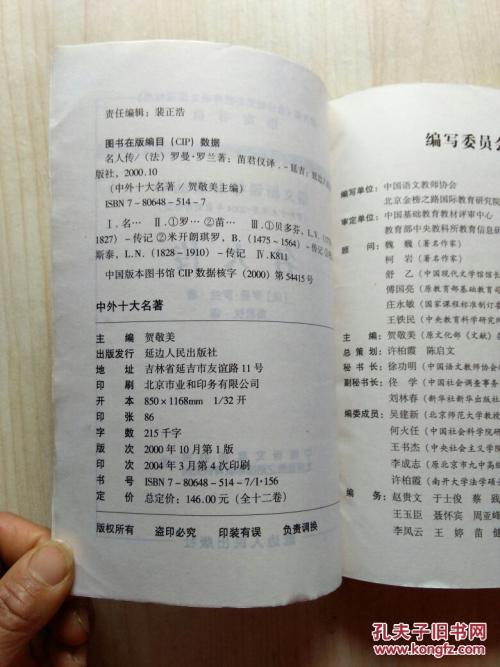 责任编辑：裴正浩
图书在版编目（CIP）数据
名人传／（法）罗曼·罗兰著；苗君仪译．－延吉：延边人民
出版社，2000.10
（中外十大名著／贺敬美主编）
ISBN 7－80648－514－7
Ⅰ.名… Ⅱ.①罗… ②苗… Ⅲ.①贝多芬，L.V.
1827）－传记②米开朗琪罗，B.（1475～1564）－传记③
斯泰，L.N.（1828～1910）－传记 Ⅳ.K811
中国版本图书馆 CIP 数据核字（2000）第 54415 号
中外十大名著
主 编 贺敬美
出版发行 延边人民出版社
地 址 吉林省延吉市友谊路 11 号
印 刷 北京市业和印务有限公司
开 本 850×1168mm 1／32 开
印 张 86
字 数 215 千字
版 次 2000 年 10 月第 1 版
印 次 2004 年 3 月第 4 次印刷
书 号 ISBN 7－80648－514－7/I·156
定 价 总定价：146.00 元（全十二卷）
版权所有 盗印必究 印装有误 负责调换
编写委员会
编写单位：中国语文教师协会
北京金榜之路国际教育研究院
审定单位：中国基础教育教材评审中心
教育部中央教科所教育信息研
顾 问：魏 巍（著名作家）
柯 岩（著名作家）
舒 乙（中国现代文学馆馆长
傅国亮（原教育部基础教育司
庄永敏（国家课程标准制订委
王铁民（中央教育科学研究所
主 编：贺敬美（原文化部《文献》杂
总 策 划：许柏霞 陈启文
秘 书 长：徐功明（中国语文教师协会
副秘书长：佟 学（中国社会调查事
刘林春（新华社新华出版社
编委成员：吴建新（北京师范大学教授
何火任（中国社会科学院研
王书杰（中央社会主义学院
李成志（原北京市九中高级
许柏霞（南开大学法学硕士
编 务：赵贵文 于士俊 蔡 践
王玉臣 聂怀宾 周亚峰
李凤云 王 婷 苗 健
孔夫子旧书网
www.kongfz.com